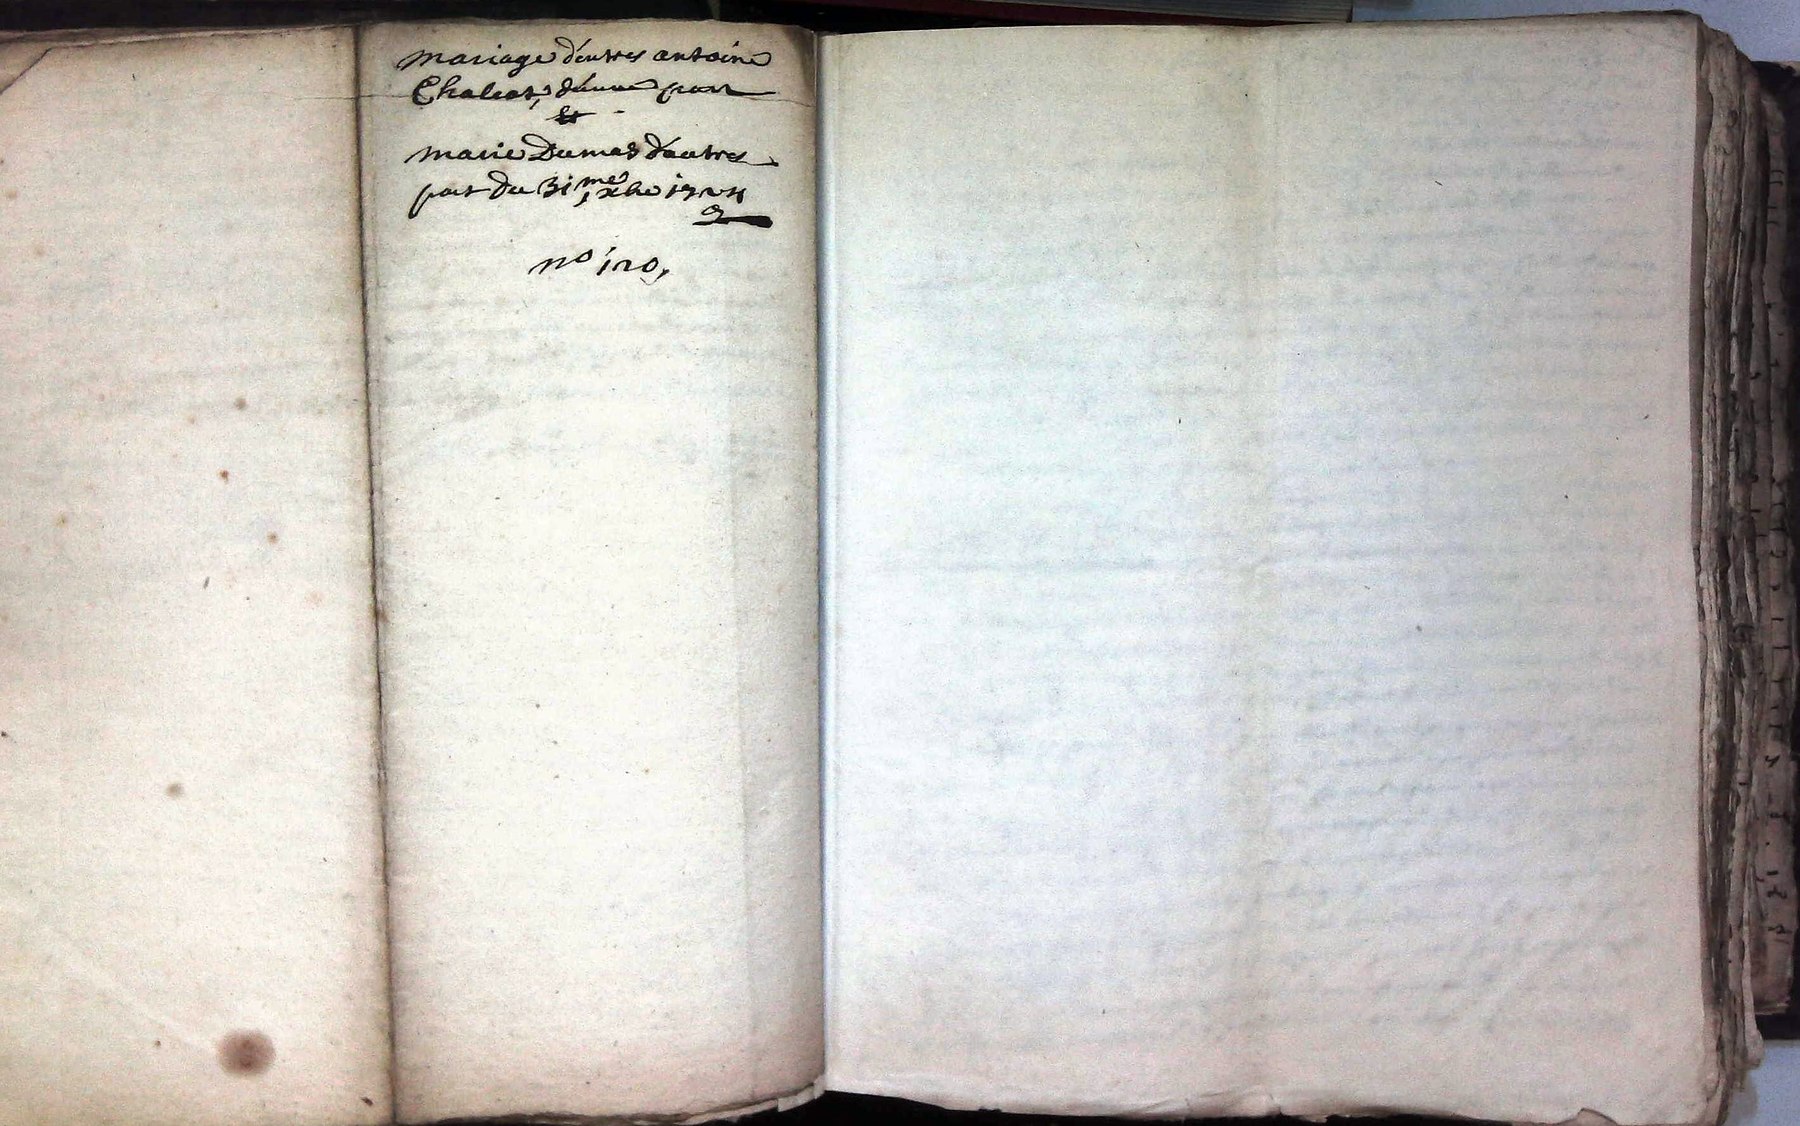 mariage d'entres antoine
Chaleat, d'une part
Et
marie Dumas d'autres
part du 31me xbre
n° 120,